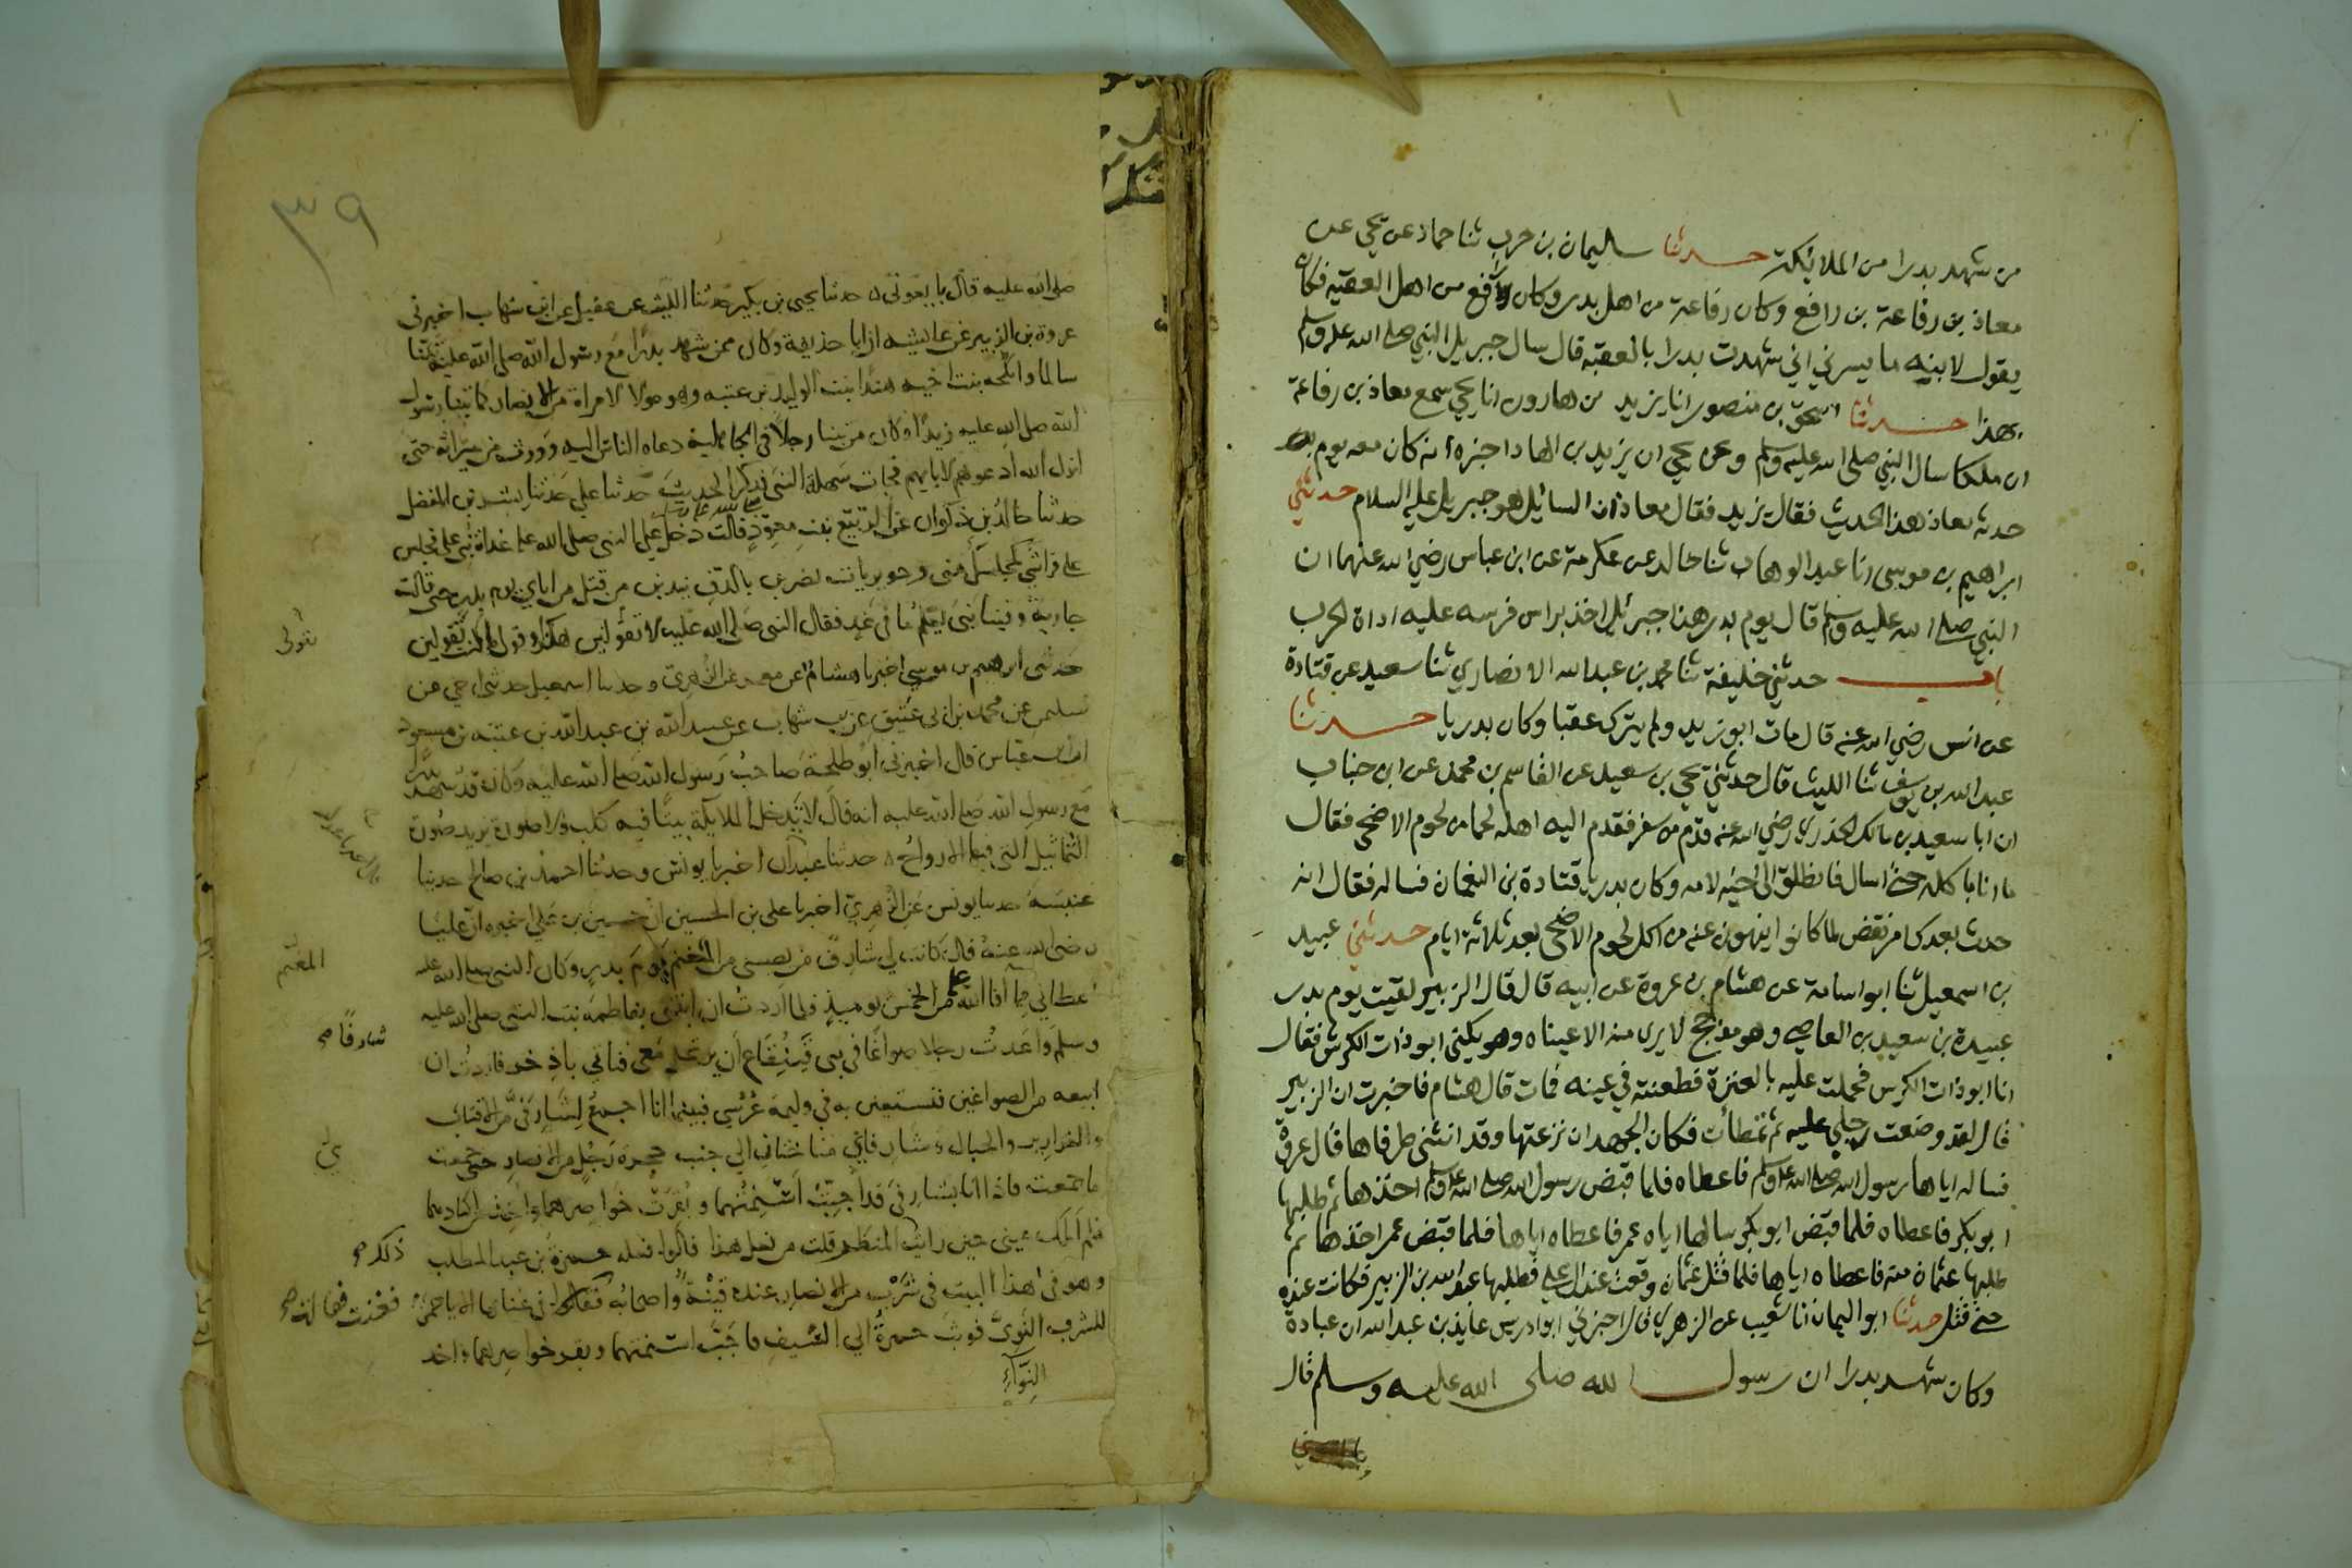 من شهد بدرا من الملائكة حدثنا سليمان بن حرب ثنا حماد عن يحيى عن
معاذ بن رفاعة بن رافع وكان رفاعة من اهل بدر وكان رافع من اهل العقبة فكان
يقول لابنه ما يسرني اني شهدت بدرا بالعقبة قال سال جبريل النبي صلى الله عليه وسلم
بهذا حدثنا اسحق بن منصور انا يزيد بن هارون انا يحيى سمع معاذ بن رفاعة
ان ملكا سال النبي صلى الله عليه وسلم وعن يحيى ان يزيد بن الهاد اخبره أنه كان معه يوم
حدثه معاذ هذا الحديث فقال يزيد فقال معاذ ان السائل هو جبريل عليه السلام حدثني
ابراهيم بن موسى انا عبد الوهاب ثنا خالد عن عكرمة عن ابن عباس رضي الله عنهما ان
النبي صلى الله عليه وسلم قال يوم بدر هذا جبرئيل اخذ براس فرسه عليه اداة الحرب
باب حدثني خليفة ثنا محمد بن عبد الله الانصاري ثنا سعيد عن قتادة
عن انس رضي الله عنه قال مات ابو زيد ولم يترك عقبا وكان بدريا حدثنا
عبد الله بن يوسف ثنا الليث قال حدثني يحيى بن سعيد عن القاسم بن محمد عن ابن خباب
ان ابا سعيد بن مالك الخدري رضي الله عنه قدم من سفر فقدم اليه اهله لحما من لحوم الاضحى فقال
ما انا باكله حتى اسال فانطلق الى اخيه لامه وكان بدريا قتادة بن النعمان فساله فقال انه
حدث بعدك امر نقض لما كانوا ينهون عنه من اكل لحوم الاضحى بعد ثلاثة ايام حدثني عبيد
بن اسمعيل ثنا ابو اسامة عن هشام بن عروة عن ابيه قال قال الزبير لقيت يوم بدر
عبيدة بن سعيد بن العاصي وهو مدجج لا يرى منه الا عيناه وهو يكنى ابو ذات الكرش فقال
انا ابو ذات الكرش فحملت عليه بالعنزة فطعنته في عينه فمات قال هشام فاخبرت ان الزبير
قال لقد وضعت رجلي عليه ثم تمطأت فكان الجهد ان نزعتها وقد انثنى طرفاها قال عروة
فساله اياها رسول الله صلى الله عليه وسلم فاعطاه فلما قبض رسول الله صلى الله عليه وسلم اخذها ثم طلبها
ابو بكر فاعطاه فلما قبض ابو بكر سالها اياه عمر فاعطاه اياها فلما قبض عمر اخذها ثم
طلبها عثمان منه فاعطاه اياها فلما قتل عثمان وقعت عند ال علي فطلبها عبد الله بن الزبير فكانت عنده
حتى قتل حدثنا ابو اليمان انا شعيب عن الزهري قال اخبرني ابو ادريس عايذ بن عبد الله ان عبادة
وكان شهد بدرا ان رسول الله صلى الله عليه وسلم قال
٣٩
صلى الله عليه قال بايعوني حدثنا يحيى بن بكير حدثنا الليث عن عقيل عن ابن شهاب اخبرني
عروة بن الزبير عن عائشه ان ابا حذيفة وكان ممن شهد بدرا مع رسول الله صلى الله عليه تبنا
سالما وانكحه بنت اخيه هندا بنت الوليد بن عتبه وهو مولا لامراة من الانصار كما تبنا رسول
الله صلى الله عليه زيدا وكان من تبنا رجلا في الجاهلية دعاه الناس اليه وورث من ميراثه حتى
انزل الله ادعوهم لابايهم فجات سهلة النبي فذكر الحديث حدثنا علي حدثنا بشر بن المفضل
حدثنا خالد بن ذكوان عن الربيع بنت معوذ قالت دخل علي النبي صلى الله عليه غداة بني علي فجلس
على فراشي كمجلسك مني وجويريات يضربن بالدف يندبن من قتل من اباي يوم بدر حتى قالت
جارية وفينا نبي يعلم ما في غد فقال النبي صلى الله عليه لا تقولين هكذا وقولي ما كنت تقولين
قولي
حدثني ابرهيم بن موسى اخبرنا هشام عن معمر عن الزهري وحدثنا اسمعيل حدثني اخي عن
سليمن عن محمد بن ابي عتيق عن ابن شهاب عن عبيد الله بن عبد الله بن عتبه بن مسعود
ان ابن عباس قال اخبرني ابو طلحة صاحب رسول الله صلى الله عليه وكان قد شهد بدرا
مع رسول الله صلى الله عليه انه قال لا تدخل الملائكة بيتا فيه كلب ولا صورة يريد صورة
التماثيل التي فيها الارواح حدثنا عبدان اخبرنا يونس وحدثنا احمد بن صالح حدثنا
عنبسة حدثنا يونس عن الزهري اخبرنا علي بن الحسين ان حسين بن علي اخبره ان عليا
رضي الله عنه قال كانت لي شارف من نصيبي من المغنم يوم بدر وكان النبي صلى الله عليه
المغنم
اعطاني مما افا الله من الخمس يوميذ فلما اردت ان ابتني بفاطمة بنت النبي صلى الله عليه
شارفا صح
وسلم واعدت رجلا صواغا في بني قينقاع ان يرتحل معي فناتي باذخر فاردت ان
ابيعه من الصواغين فنستعين به في وليمة عرسي فبينما انا اجمع لشارفي من الاقتاب
والغراير والحبال وشارفاي مناختان الى جنب حجرة رجل من الانصار حتى جمعت
ما جمعت فاذا انا بشارفي قد اجبت اسنمتهما وبقرت خواصرهما واخذ من اكبادهما
فلم املك عيني حين رايت المنظر قلت من فعل هذا قالوا فعله حمزة بن عبد المطلب
ذلك صح
وهو في هذا البيت في شرب من الانصار عنده قينة واصحابه فقالوا في غنائها الا يا حمز
للشرف النوى فوثب حمزة الى السيف فاجب اسنمتهما وبقر خواصرهما واخذ
النواء